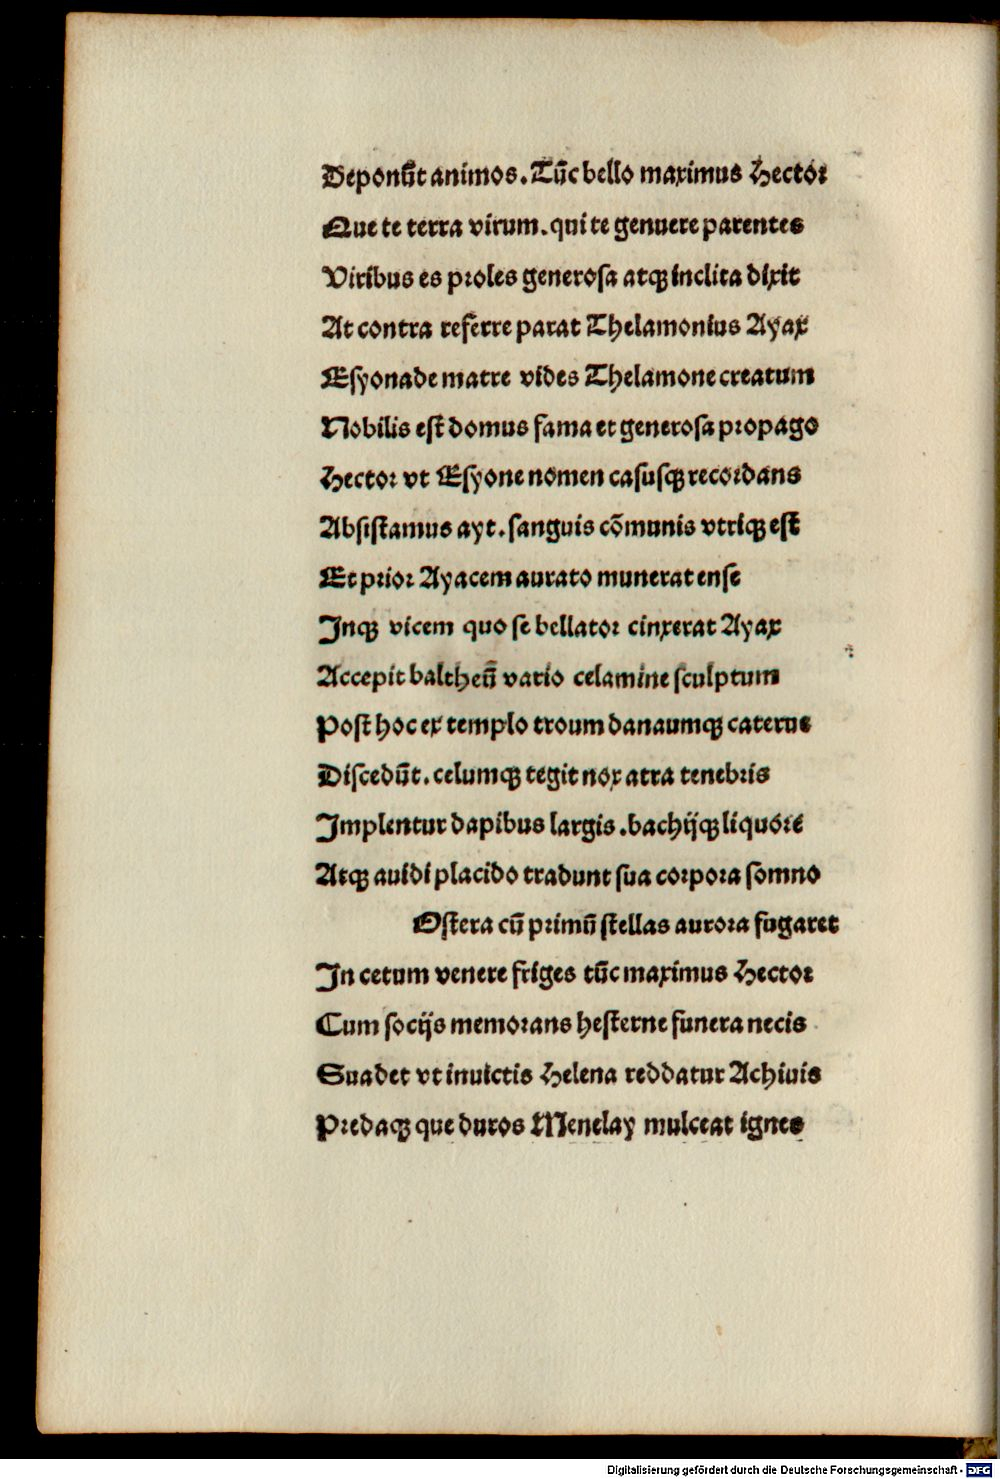 Deponūt animos. Tūc bello maximus Hector
Que te terra virum. qui te genuere parentes
Viribus es proles generosa atqꝫ inclita dixit
At contra referre parat Thelamonius Ayax
Esyonade matre vides Thelamone creatum
Nobilis est domus fama et generosa propago
Hector vt Esyone nomen casusqꝫ recordans
Absistamus ayt. sanguis cōmunis vtriqꝫ est
Et prior Ayacem aurato munerat ense
Inqꝫ vicem quo se bellator cinxerat Ayax
Accepit baltheū vario celamine sculptum
Post hoc ex templo troum danaumqꝫ caterue
Discedūt. celumqꝫ tegit nox atra tenebris
Implentur dapibus largis. bachijqꝫ liquore
Atqꝫ auidi placido tradunt sua corpora somno
Ostera cū primū stellas aurora fugaret
In cetum venere friges tūc maximus Hector
Cum socijs memorans hesterne funera necis
Suadet vt inuictis Helena reddatur Achiuis
Predaqꝫ que duros Menelay mulceat ignes
Digitalisierung gefördert durch die Deutsche Forschungsgemeinschaft - DFG